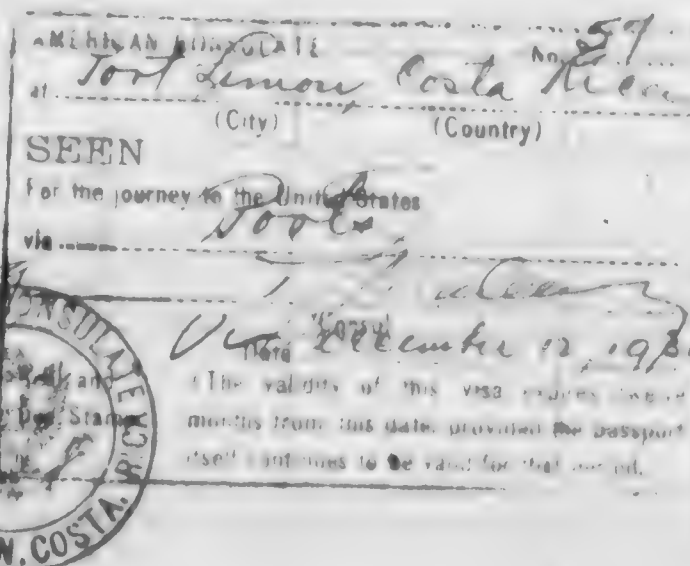 AMERICAN CONSULATE No. 57
at Port Limon Costa Rica
(City) (Country)
SEEN
For the journey to the United States
via Ports
Consul
Date December 12, 19
(The validity of this visa expires twelve
months from this date, provided the passport
itself continues to be valid for that period.
CONSULATE
Seal and
Stamp
N, COSTA RICA